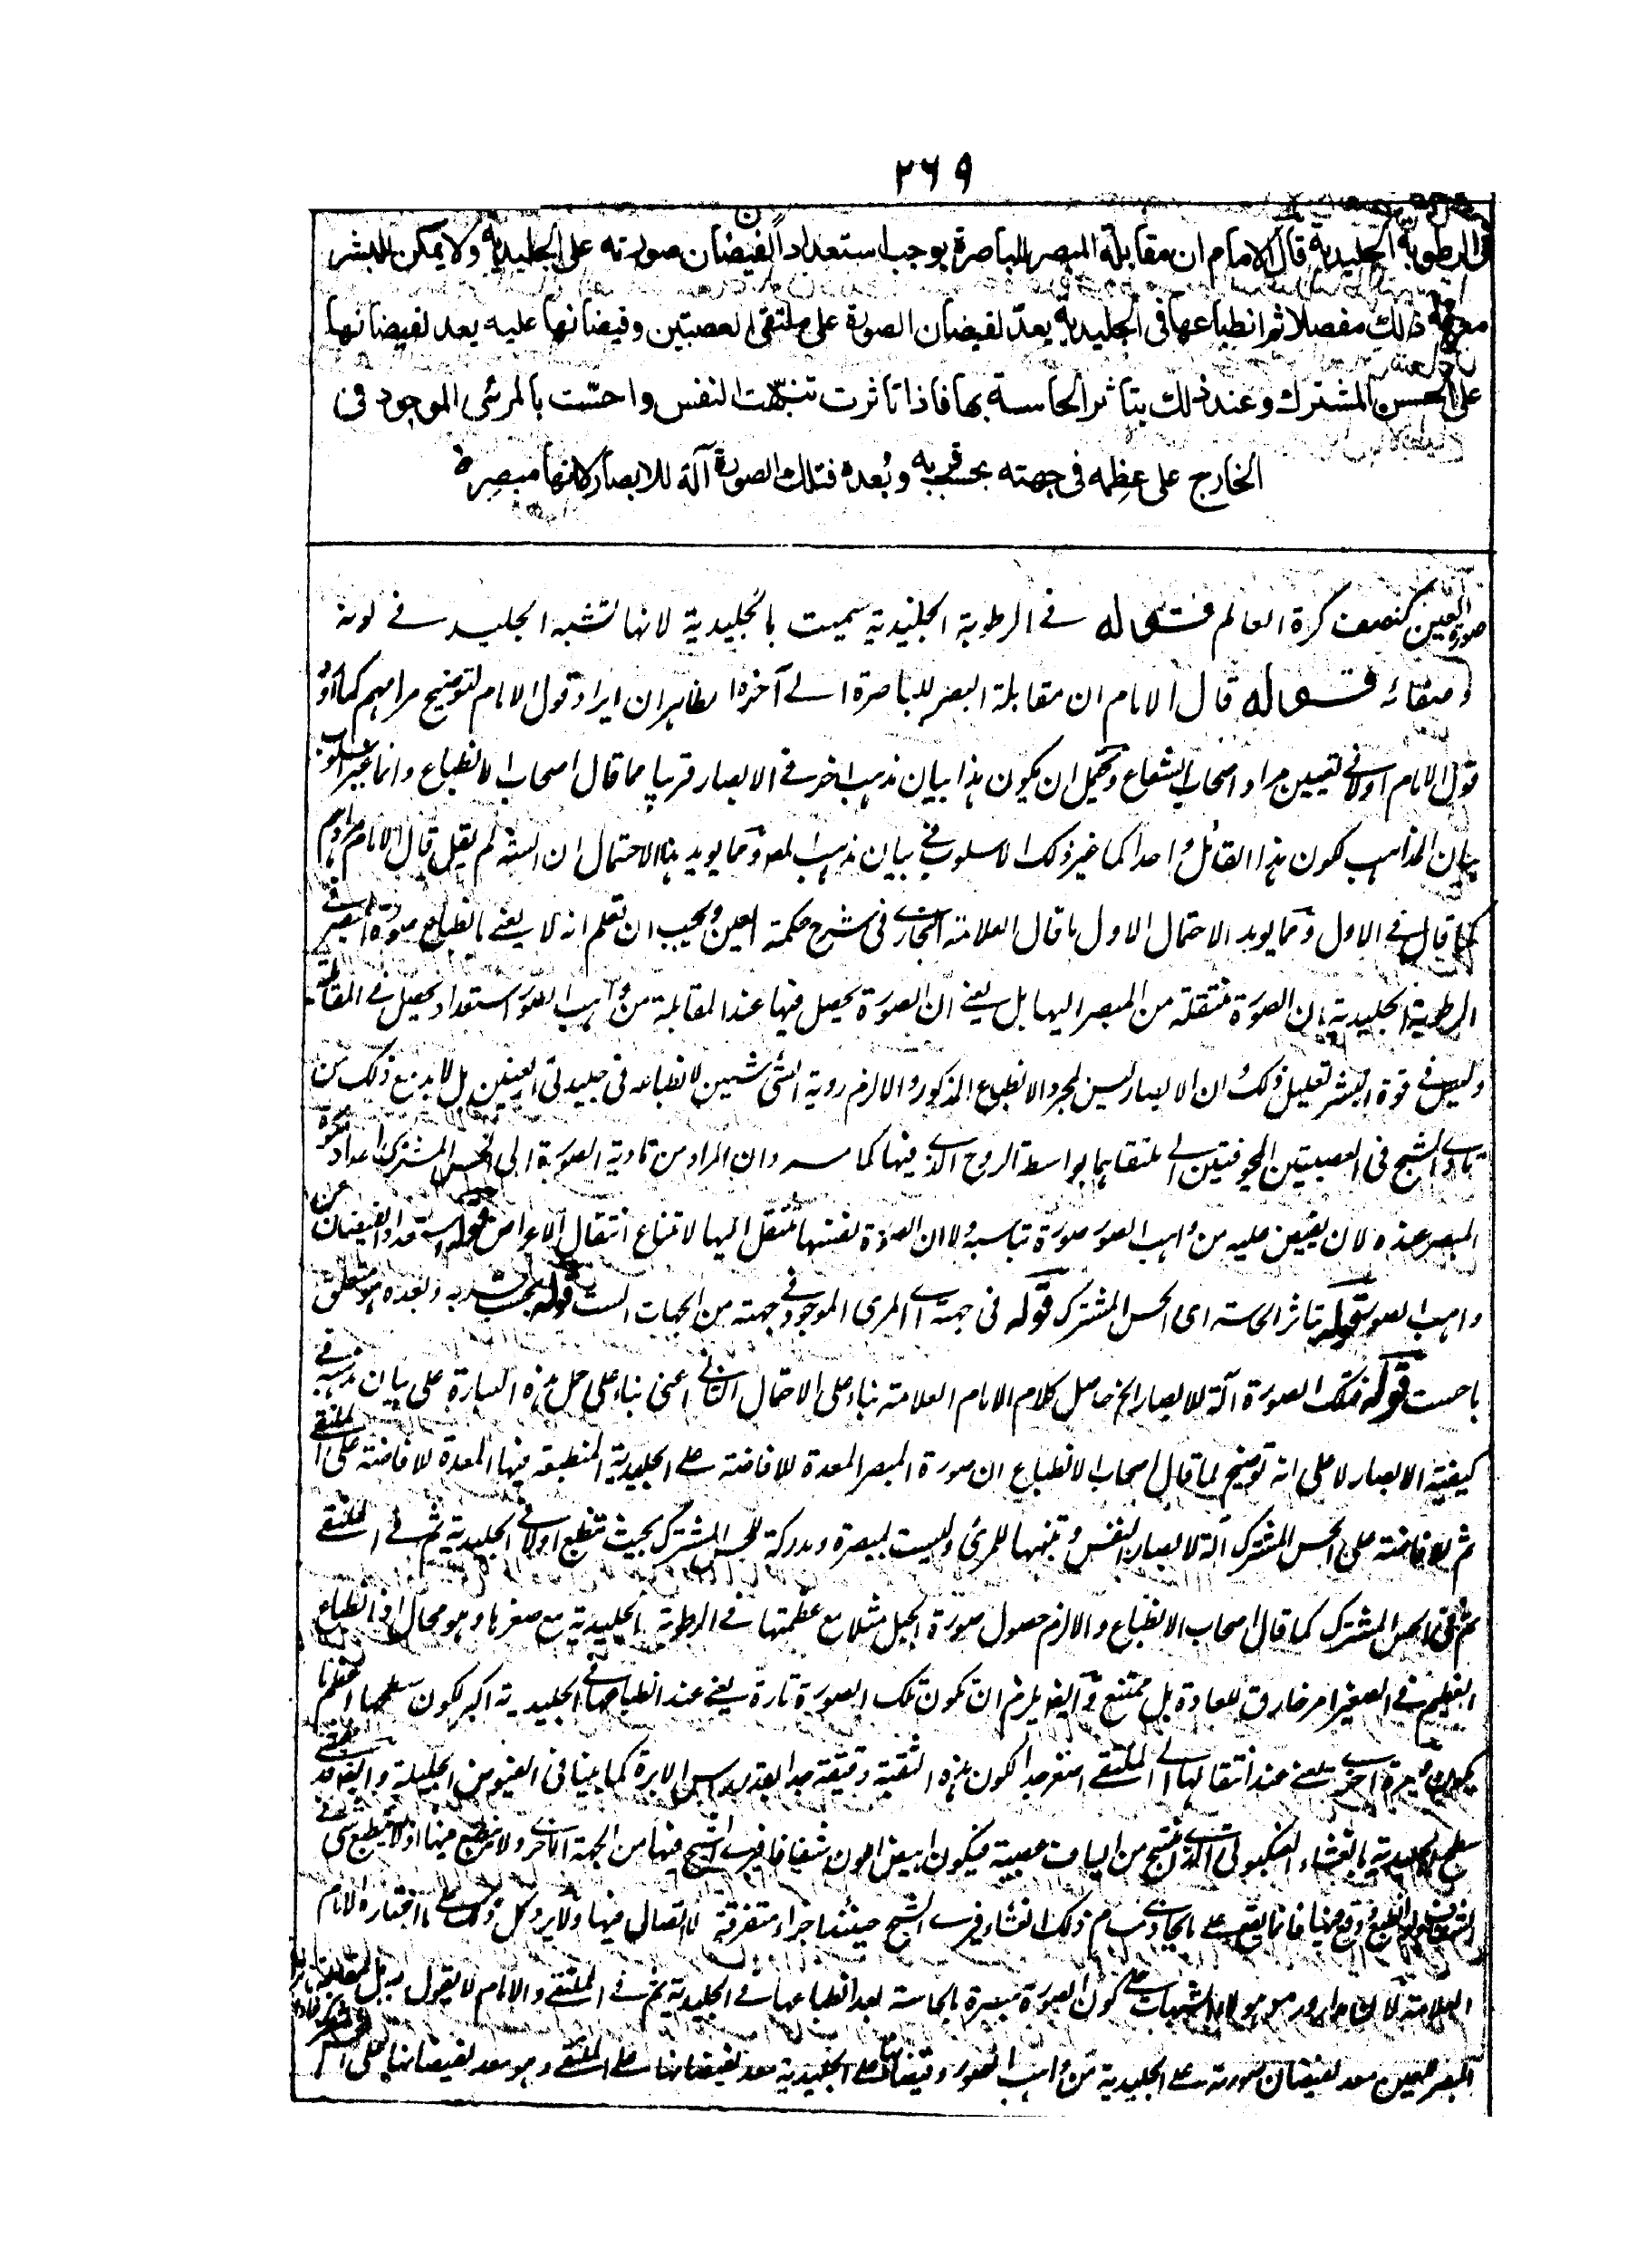 ٢٦٩
فى الرطوبة الجليدية قال الامام ان مقابلة المبصر للباصرة يوجب استعداداً لفيضان صورته على الجليدية ولا يمكن للبشر
معرفة ذلك مفصلا ثم انطباعها فى الجليدية يعدّ لفيضان الصورة على ملتقى العصبتين وفيضانها عليه يعد لفيضانها
على الحس المشترك وعند ذلك يتأثر الحاسة بها فاذا تأثرت تنبّهت النفس واحسّت بالمرئى الموجود فى
الخارج على عظمه فى جهته بحسب قربه وبُعده فتلك الصورة آلة للابصار لا انها مبصِرة
صورة العين كنصف كرة العالم قوله في الرطوبة الجليدية سميت بالجليدية لانها تشبه الجليد في لونه
وصفائه قوله قال الامام ان مقابلة البصر للباصرة الے آخره الظاهر ان ايراد قول الامام لتوضيح مرامهم كما اورد
قول الامام اولا في تعيين مراد اصحاب الشعاع ويحتمل ان يكون هذا بيان مذهب آخر في الابصار قريبا مما قال اصحاب الانطباع وانما غير اسلوب
بيان المذاهب لكون هذا القائل واحدا كما غير ذلك الاسلوب في بيان مذهب المعر ومما يويد هذا الاحتمال ان الشه لم يقل قال الامام مرادهم
كما قال في الاول ومما يويد الاحتمال الاول ما قال العلامة البخاري فى شرح حكمة العين ويجب ان تعلم انه لا يعني بانطباع صورة المبصر في
الرطوبة الجليدية ان الصورة منتقلة من المبصر اليها بل يعني ان الصورة تحصل فيها عند المقابلة من واهب الصور لاستعداد يحصل في المقابلة
وليس في قوة البشر تعليل ذلك وان الابصار ليس لمجرد الانطباع المذكور والا لزم روية الشئ شيئين لانطباعه فى جليدتى العينين بل لابد مع ذلك من
تادي الشبح فى العصبتين المجوفتين الى ملتقاهما بواسطة الروح الذي فيها كما مر وان المراد من تادية الصورة الى الحس المشترك اعداد
المبصر عنده لان يفيض عليه من واهب الصور صورة تناسبه لا ان الصورة نفسها تنتقل اليها لامتناع انتقال الاعراض قوله استعداد الفيضان عن
واهب الصور قوله تاثر الحاسة اى الحس المشترك قوله فى جهته اے المرئ الموجود فى جهته من الجهات الست قوله بحسب قربه وبعده هو متعلق
باحست قوله فتلك الصورة آلة للابصار الخ حاصل كلام الامام العلامة بناء على الاحتمال الثاني اعنى بناء على حمل هذه العبارة على بيان مذهبه في
كيفية الابصار لا على انه توضيح لما قال اصحاب الانطباع ان صورة المبصر المعدة للافاضة علے الجليدية المنطبعة فيها المعدة للافاضة على الملتقى
ثم للافاضة على الحس المشترك آلة لابصار النفس وتنبهها للمرئ وليست بمبصرة ومدركة للحس المشترك بحيث تنطبع اولا في الجليدية ثم في الملتقى
ثم فى الحس المشترك كما قال اصحاب الانطباع والا لزم حصول صورة الجبل مثلا مع عظمتها في الرطوبة الجليدية مع صغرها وهو محال اذ انطباع
العظيم في الصغير امر خارق للعادة بل ممتنع وايضا يلزم ان تكون تلك الصورة تارة يعني عند انطباعها في الجليدية اكبر لكون سطحها اعظم
ومرة اخرى يعني عند انتقالها الى الملتقى اصغر جدا لكون هذه الثقبة دقيقة جدا بقدر راس الابرة كما بينا فى الفيوض الجليلة وايضا قد
الجليدية بالغشاء العنكبوتي الذي نسج من الياف عصبية فيكون ابيض اللون شفافا فيرى الشبح فيها من الجهة الاخرى ولا ينطبع فيها اذ لا ينطبع شئ في
ذلك الغشاء فيرى الشبح حينئذ اجزاء متفرقة لا اتصال فيها ولا يرد كل ذلك على ما اختاره الامام
العلامة لان مدار ورود هذه الشبهات على كون الصورة مبصرة بالحاسة بعد انطباعها فى الجليدية ثم في الملتقى والامام لا يقول به بل
المبصر للعين معد لفيضان صورته علے الجليدية من واهب الصور وفيضانها على الجليدية معد لفيضانها علے الملتقى وهو معد لفيضانها على